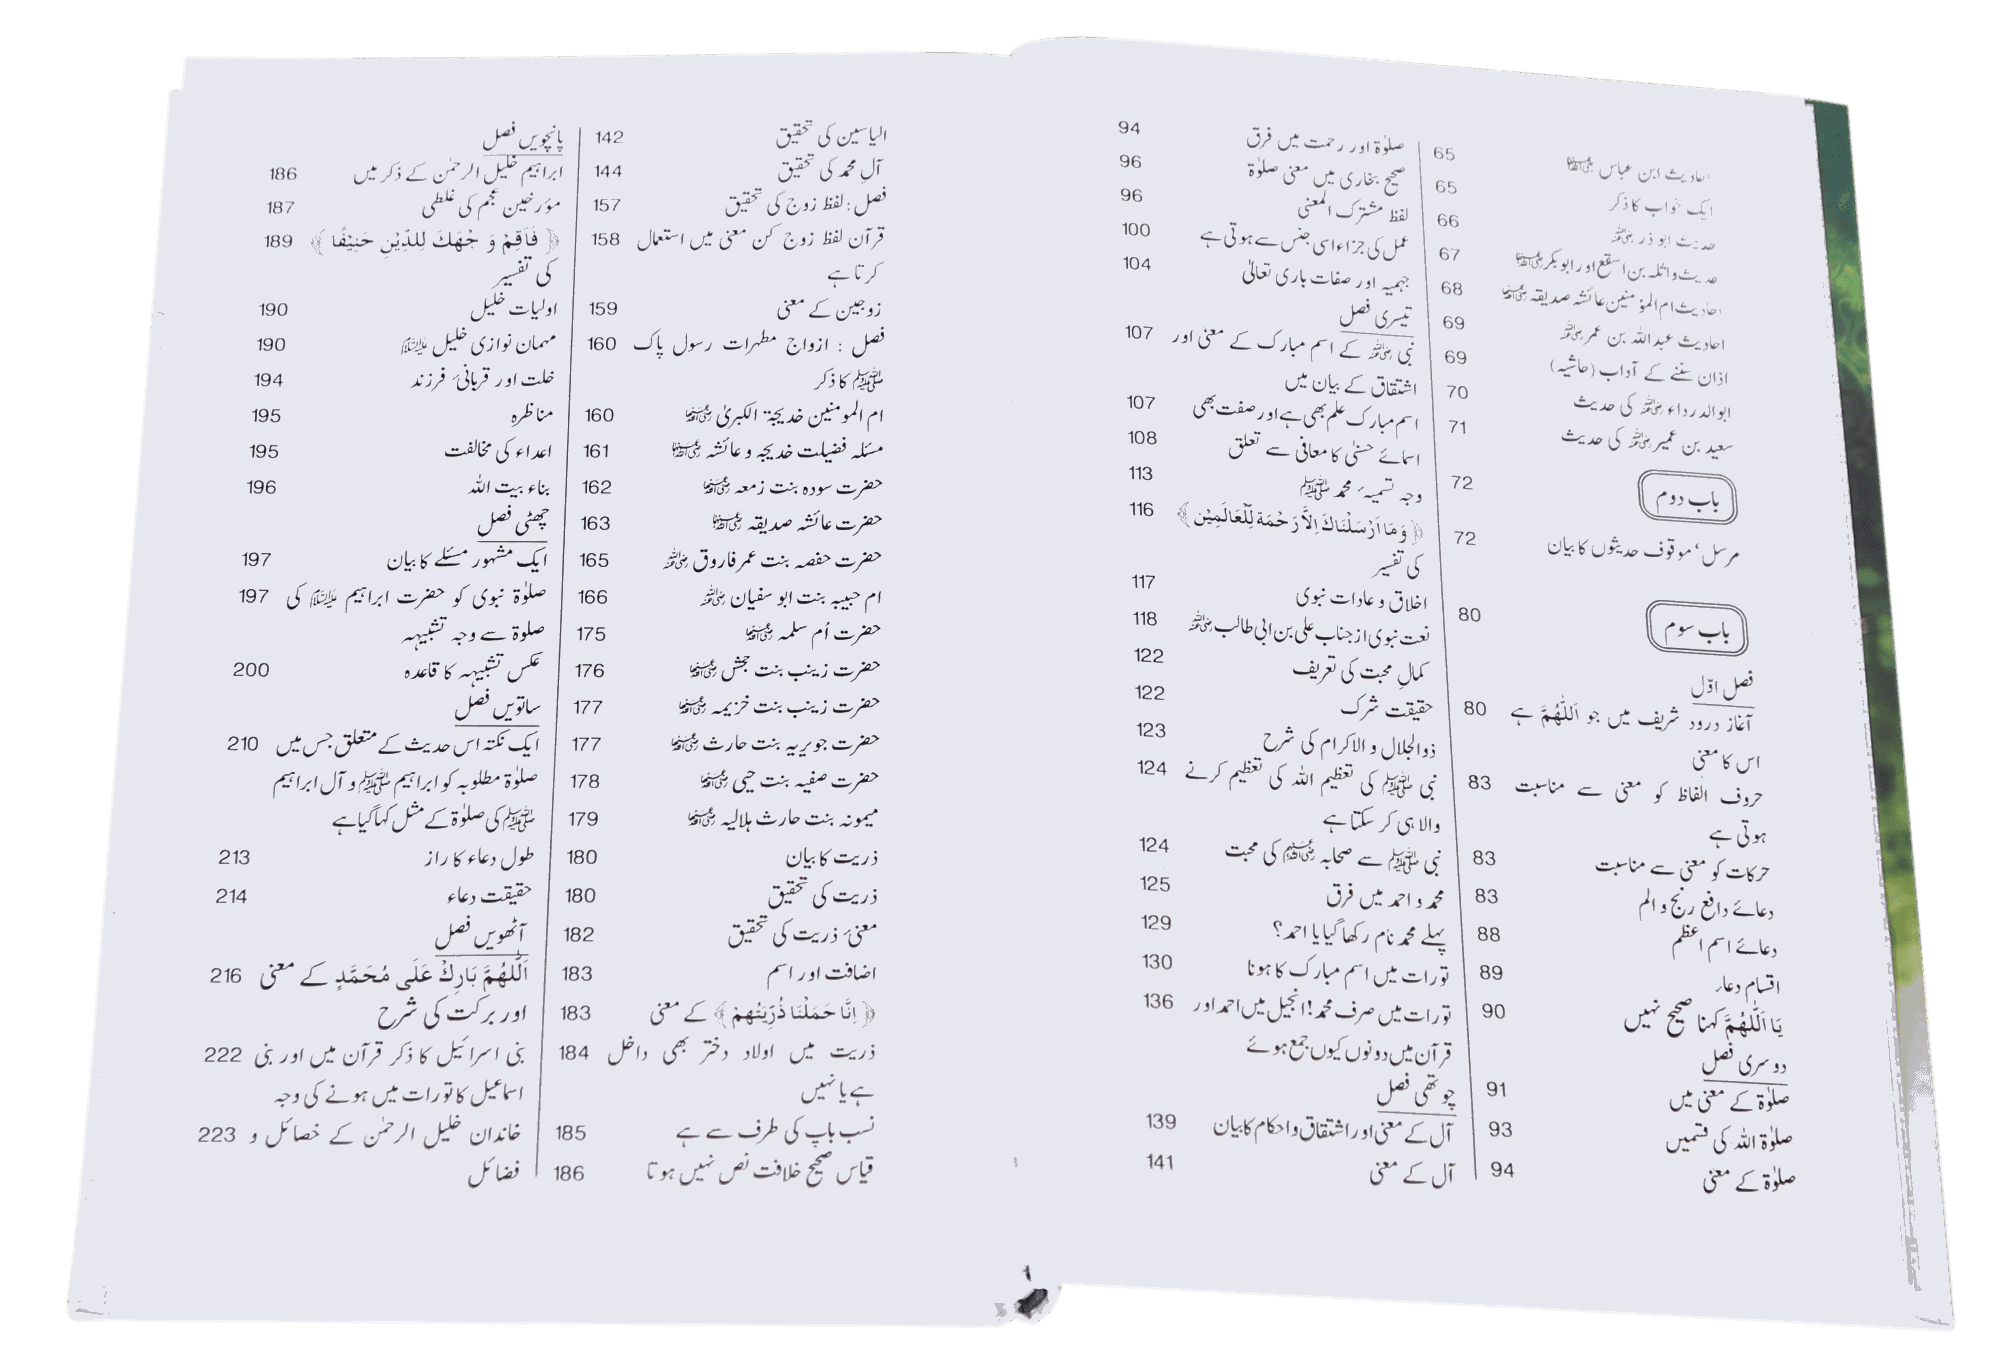 احادیث ابن عباس رضی اللہ عنہما 65
ایک خواب کا ذکر 65
حدیث ابو ذر رضی اللہ عنہ 66
حدیث واثلہ بن اسقع اور ابوبکر رضی اللہ عنہما 67
احادیث ام المؤمنین عائشہ صدیقہ رضی اللہ عنہا 68
احادیث عبداللہ بن عمر رضی اللہ عنہ 69
اذان سننے کے آداب (حاشیہ) 69
ابوالدرداء رضی اللہ عنہ کی حدیث 70
سعید بن عمیر رضی اللہ عنہ کی حدیث 71
باب دوم 72
مرسل، موقوف حدیثوں کا بیان 72
باب سوم 80
فصل اوّل
آغاز درود شریف میں جو اَللّٰهُمَّ ہے 80
اس کا معنی
حروف الفاظ کو معنی سے مناسبت 83
ہوتی ہے
حرکات کو معنی سے مناسبت 83
دعائے دافع رنج و الم 83
دعائے اسم اعظم 88
اقسام دعاء 89
یَا اَللّٰهُمَّ کہنا صحیح نہیں 90
دوسری فصل
صلوٰۃ کے معنی میں 91
صلوٰۃ اللہ کی قسمیں 93
صلوٰۃ کے معنی 94
صلوٰۃ اور رحمت میں فرق 94
صحیح بخاری میں معنی صلوٰۃ 96
لفظ مشترک المعنی 96
عمل کی جزاء اسی جنس سے ہوتی ہے 100
جہمیہ اور صفات باری تعالیٰ 104
تیسری فصل
نبی ﷺ کے اسم مبارک کے معنی اور 107
اشتقاق کے بیان میں
اسم مبارک علم بھی ہے اور صفت بھی 107
اسمائے حسنیٰ کا معافی سے تعلق 108
وجہ تسمیہء محمد ﷺ 113
﴿وَمَا اَرْسَلْنَاكَ اِلاَّ رَحْمَة لِّلْعَالَمِيْن﴾ 116
کی تفسیر
اخلاق و عادات نبوی 117
نعت نبوی از جناب علی بن ابی طالب رضی اللہ عنہ 118
کمالِ محبت کی تعریف 122
حقیقت شرک 122
ذوالجلال والاکرام کی شرح 123
نبی ﷺ کی تعظیم اللہ کی تعظیم کرنے 124
والا ہی کر سکتا ہے
نبی ﷺ سے صحابہ رضی اللہ عنہم کی محبت 124
محمد و احمد میں فرق 125
پہلے محمد نام رکھا گیا یا احمد؟ 129
تورات میں اسم مبارک کا ہونا 130
تورات میں صرف محمد! انجیل میں احمد اور 136
قرآن میں دونوں کیوں جمع ہوئے
چوتھی فصل
آل کے معنی اور اشتقاق و احکام کا بیان 139
آل کے معنی 141
الیاسین کی تحقیق 142
آلِ محمد کی تحقیق 144
فصل: لفظ زوج کی تحقیق 157
قرآن لفظ زوج کن معنی میں استعمال 158
کرتا ہے
زوجین کے معنی 159
فصل : ازواج مطہرات رسول پاک 160
ﷺ کا ذکر
ام المومنین خدیجۃ الکبریٰ رضی اللہ عنہا 160
مسئلہ فضیلت خدیجہ و عائشہ رضی اللہ عنہما 161
حضرت سودہ بنت زمعہ رضی اللہ عنہا 162
حضرت عائشہ صدیقہ رضی اللہ عنہا 163
حضرت حفصہ بنت عمر فاروق رضی اللہ عنہ 165
ام حبیبہ بنت ابو سفیان رضی اللہ عنہ 166
حضرت اُم سلمہ رضی اللہ عنہا 175
حضرت زینب بنت جحش رضی اللہ عنہا 176
حضرت زینب بنت خزیمہ رضی اللہ عنہا 177
حضرت جویریہ بنت حارث رضی اللہ عنہا 177
حضرت صفیہ بنت حیی رضی اللہ عنہا 178
میمونہ بنت حارث ہلالیہ رضی اللہ عنہا 179
ذریت کا بیان 180
ذریت کی تحقیق 180
معنیٔ ذریت کی تحقیق 182
اضافت اور اسم 183
﴿اِنَّا حَمَلْنَا ذُرِّيَّتَهِمْ﴾ کے معنی 183
ذریت میں اولاد دختر بھی داخل 184
ہے یا نہیں
نسب باپ کی طرف سے ہے 185
قیاس صحیح خلافت نص نہیں ہوتا 186
پانچویں فصل
ابراہیم خلیل الرحمٰن کے ذکر میں 186
مؤرخین عجم کی غلطی 187
﴿فَاَقِمْ وَ جْهَكَ لِلدِّيْنِ حَنِيْفًا﴾ 189
کی تفسیر
اولیات خلیل 190
مہمان نوازی خلیل علیہ السلام 190
خلت اور قربانیٔ فرزند 194
مناظرہ 195
اعداء کی مخالفت 195
بناء بیت اللہ 196
چھٹی فصل
ایک مشہور مسئلے کا بیان 197
صلوٰۃ نبوی کو حضرت ابراہیم علیہ السلام کی 197
صلوۃ سے وجہ تشبیہہ
عکس تشبیہہ کا قاعدہ 200
ساتویں فصل
ایک نکتہ اس حدیث کے متعلق جس میں 210
صلوٰۃ مطلوبہ کو ابراہیم ﷺ و آل ابراہیم
ﷺ کی صلوٰۃ کے مثل کہا گیا ہے
طول دعاء کا راز 213
حقیقت دعاء 214
آٹھویں فصل
اَللّٰهُمَّ بَارِكْ عَلَى مُحَمَّدٍ کے معنی 216
اور برکت کی شرح
بنی اسرائیل کا ذکر قرآن میں اور بنی 222
اسماعیل کا تورات میں ہونے کی وجہ
خاندان خلیل الرحمٰن کے خصائل و 223
فضائل